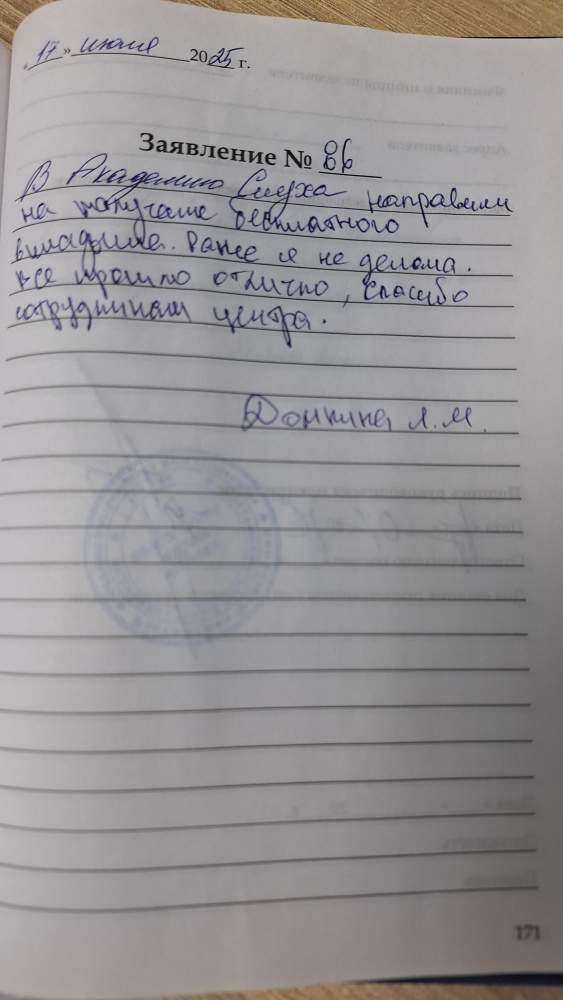 «17» июля 2025 г.
Заявление № 86
В Академию Слуха направили
на получение бесплатного
вкладыша. Ранее я не делала.
Все прошло отлично, спасибо
сотрудникам центра.
Донкина Л.М.
171